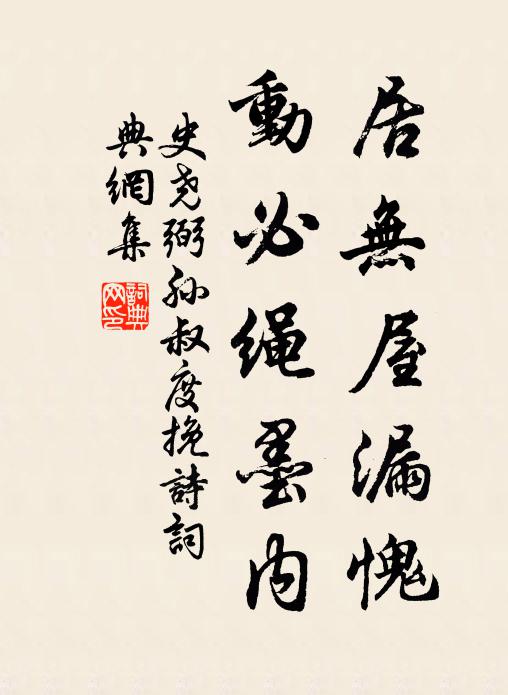 居無屋漏愧
動必绳墨内
史尧弼孙叔度挽詩詞
典網集
詞典網印